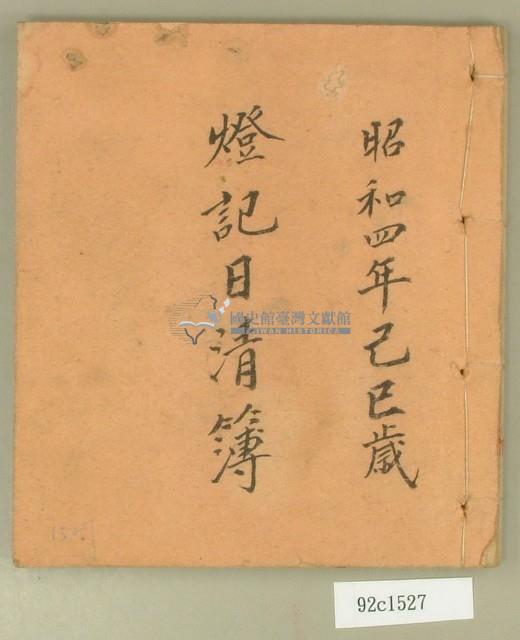 昭和四年己巳歲
燈記日清簿
國史館臺灣文獻館
TAIWAN HISTORICA
92c1527